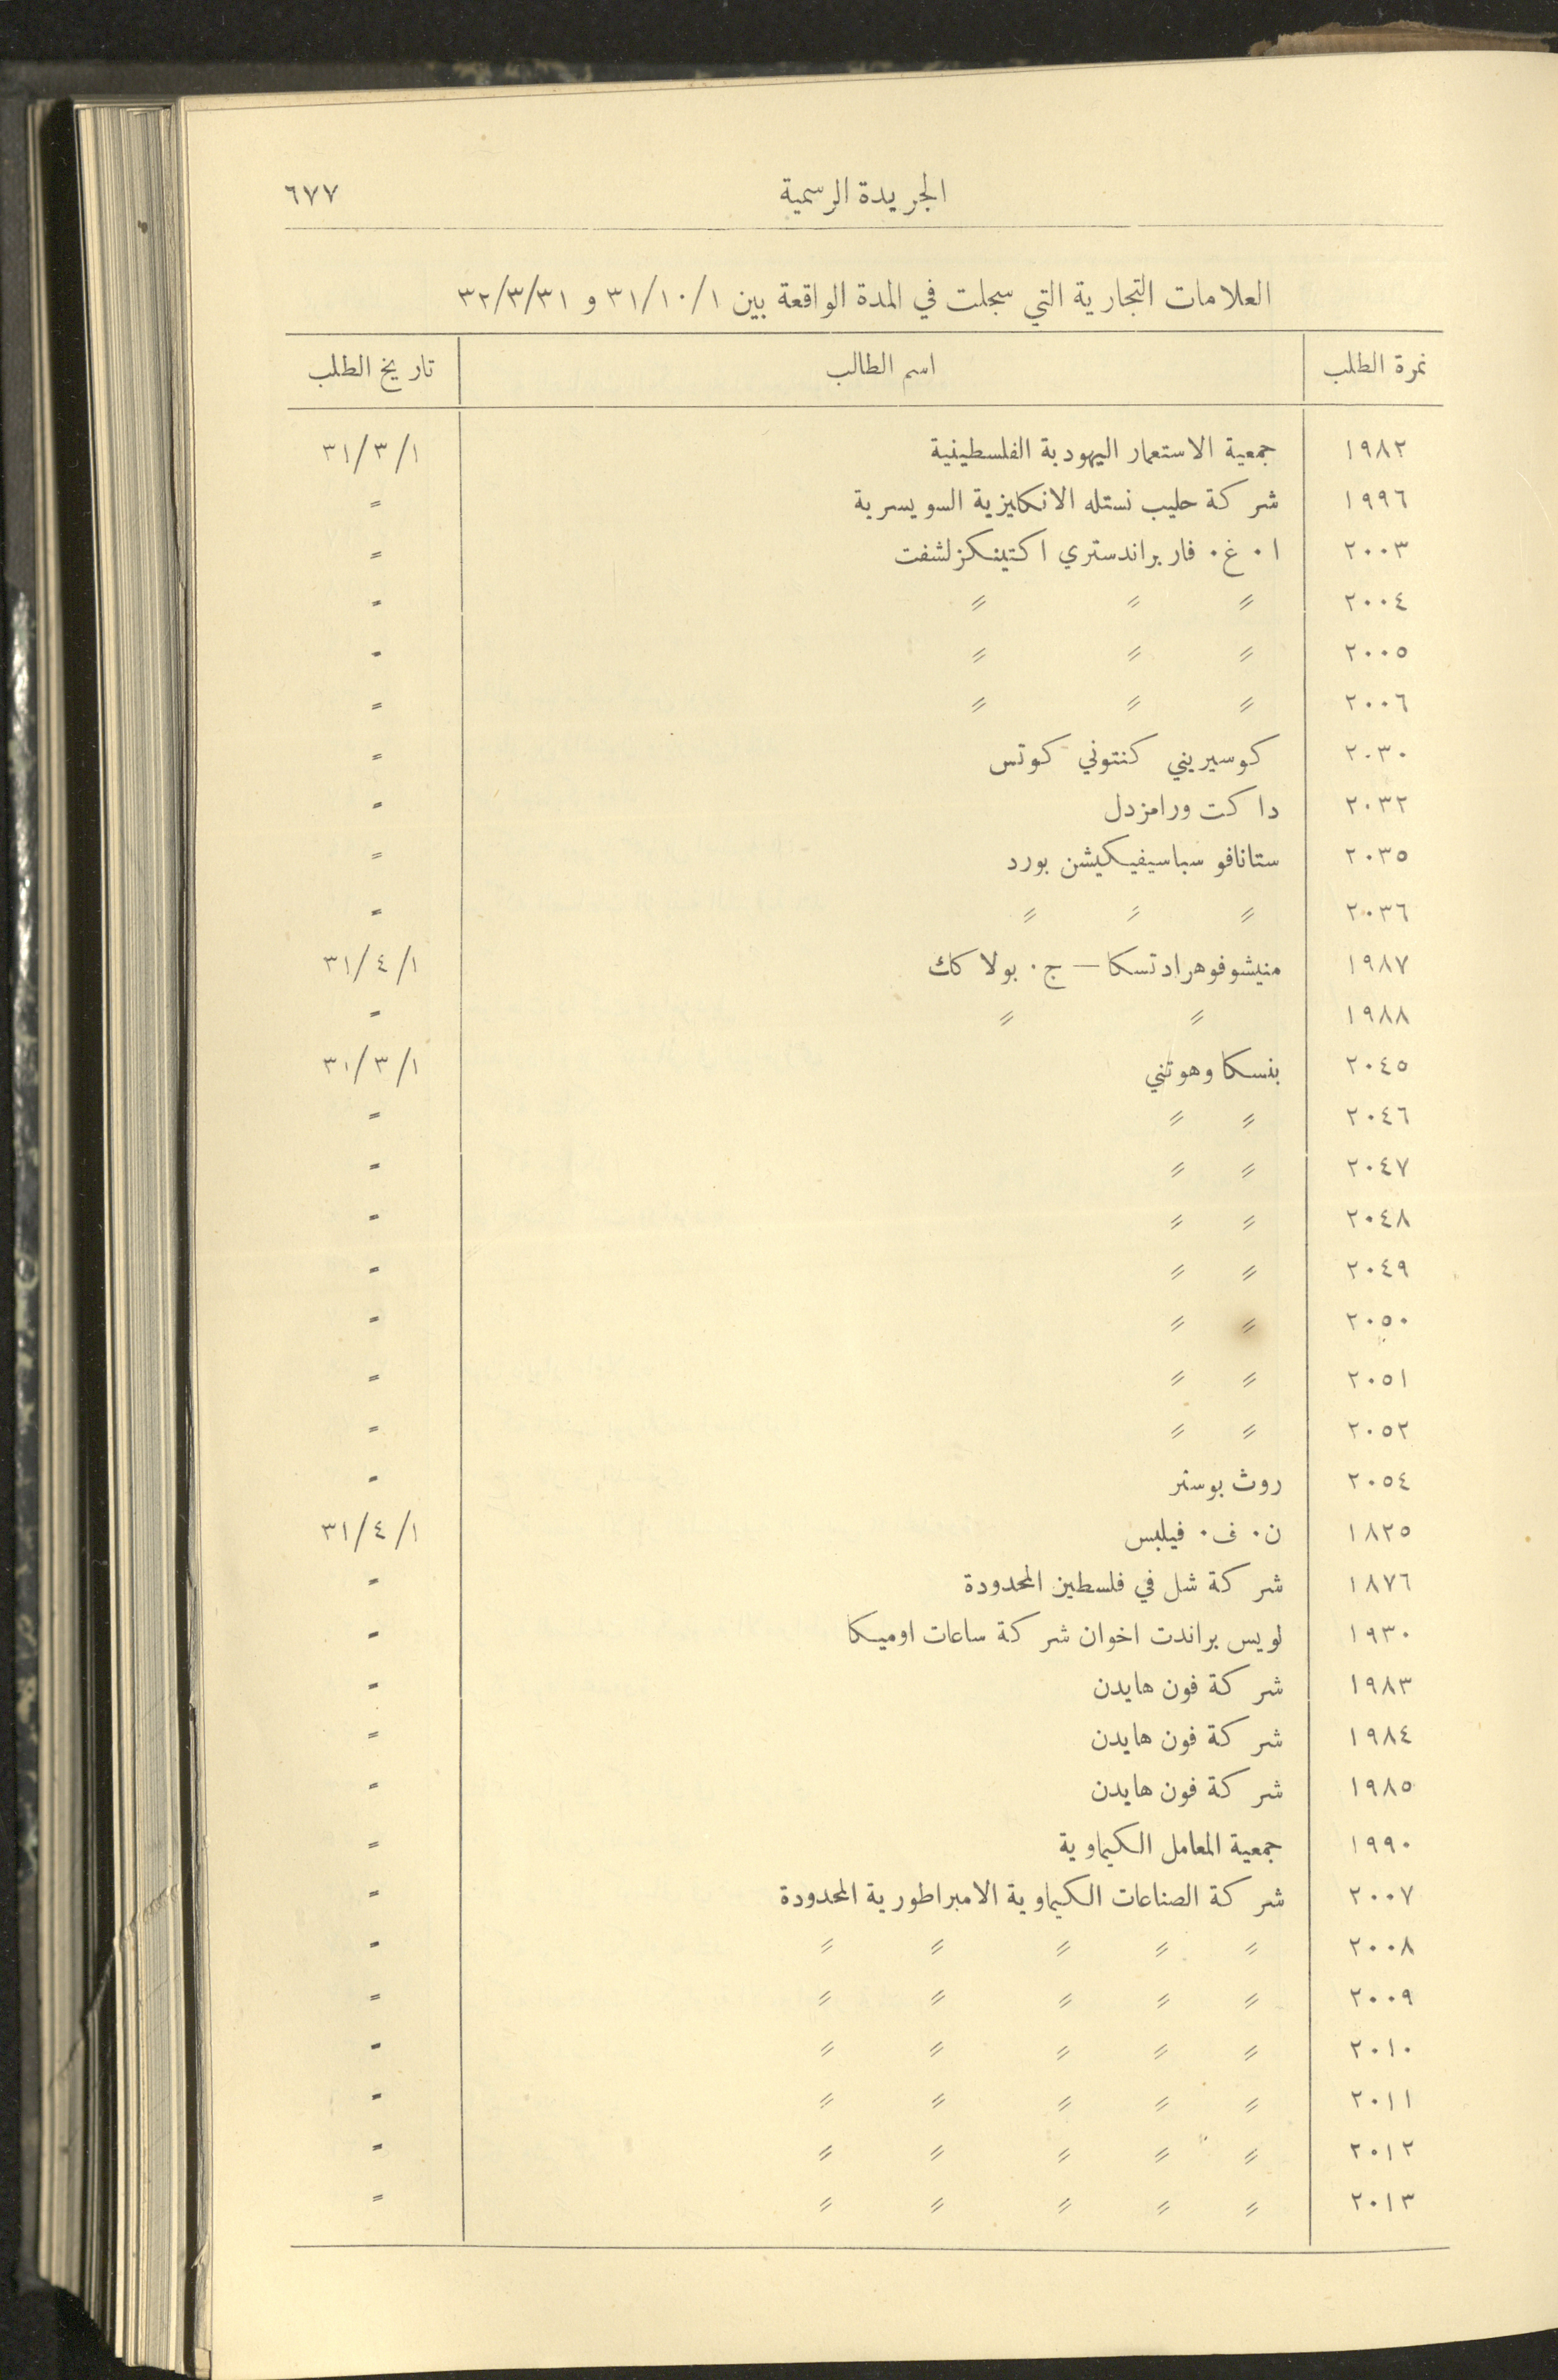 الجريدة الرسمية ٦٧٧
العلامات التجارية التي سجلت في المدة الواقعة بين ٣١/١٠/١ و ٣٢/٣/٣١
نمرة الطلب اسم الطالب تاريخ الطلب
١٩٨٢ جمعية الاستعمار اليهودية الفلسطينية ٣١/٣/١
١٩٩٦ شركة حليب نستله الانكليزية السويسرية =
٢٠٠٣ ا٠ غ٠ فاربراندستري اكتينكزلشفت =
٢٠٠٤ = = = =
٢٠٠٥ = = = =
٢٠٠٦ = = = =
٢٠٣٠ كوسيريني كنتوني كوتس =
٢٠٣٢ داكت ورامزدل =
٢٠٣٥ ستانافو سباسيفيكيشن بورد =
٢٠٣٦ = = = =
١٩٨٧ منيشوفوهرادتسكا — ج٠ بولاكك ٣١/٤/١
١٩٨٨ = = =
٢٠٤٥ بنسكا وهوتني ٣١/٣/١
٢٠٤٦ = = =
٢٠٤٧ = = =
٢٠٤٨ = = =
٢٠٤٩ = = =
٢٠٥٠ = = =
٢٠٥١ = = =
٢٠٥٢ = = =
٢٠٥٤ روث بوستر =
١٨٢٥ ن٠ ف٠ فيلبس ٣١/٤/١
١٨٧٦ شركة شل في فلسطين المحدودة =
١٩٣٠ لويس براندت اخوان شركة ساعات اوميكا =
١٩٨٣ شركة فون هايدن =
١٩٨٤ شركة فون هايدن =
١٩٨٥ شركة فون هايدن =
١٩٩٠ جمعية المعامل الكيماوية =
٢٠٠٧ شركة الصناعات الكيماوية الامبراطورية المحدودة =
٢٠٠٨ = = = = = =
٢٠٠٩ = = = = = =
٢٠١٠ = = = = = =
٢٠١١ = = = = = =
٢٠١٢ = = = = = =
٢٠١٣ = = = = = =